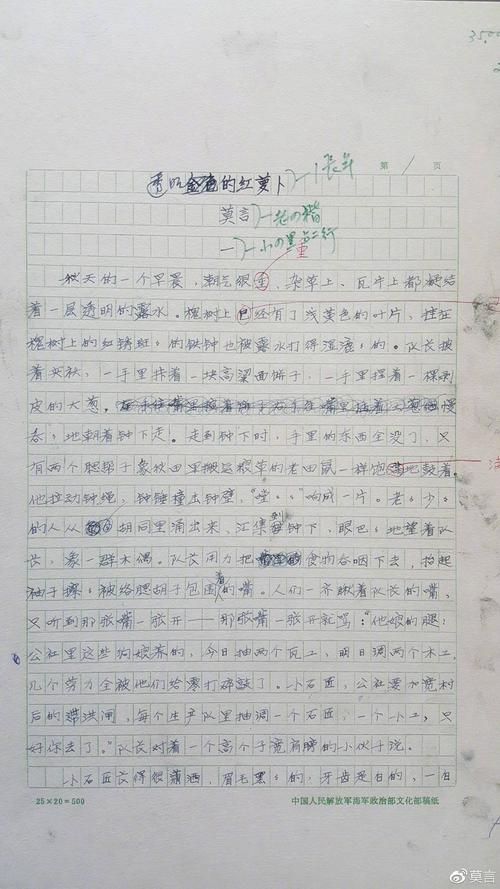 35.00
第 1 页
透明的红萝卜 长牟
莫言 老0楷
一 小0黑占二行
秋天的一个早晨，潮气很重，杂草上、瓦片上都凝结
着一层透明的露水。槐树上已经有了浅黄色的叶片，挂在
槐树上的红锈斑〻的铁钟也被露水打得湿漉〻的。队长披
着夹袄，一手里拤着一块高粱面饼子，一手里捏着一棵剥
皮的大葱，慢
吞〻地朝着钟下走。走到钟下时，手里的东西全没了，只
有两个腮帮子象秋田里搬运粮草的老田鼠一样饱满地鼓着。
他拉动钟绳，钟锤撞击钟壁，"嘡〻〻"响成一片。老〻少〻
的人从胡同里涌出来，汇集到钟下，眼巴〻地望着队
长，象一群木偶。队长用力把食物吞咽下去，抬起
袖子擦〻被络腮胡子包围着的嘴。人们一齐瞅着队长的嘴，
只听到那张嘴一张开——那张嘴一张开就骂："他娘的腿！
公社里这些狗娘养的，今日抽两个瓦工，明日调两个木工，
几个劳力全被他们给零打碎敲了。小石匠，公社要加宽村
后的滞洪闸，每个生产队里抽调一个石匠，一个小工，只
好你去了。"队长对着一个高个子宽肩膀的小伙子说。
小石匠长得很潇洒，眉毛黑〻的，牙齿是白的，一白
25×20=500 中国人民解放军海军政治部文化部稿纸
莫言